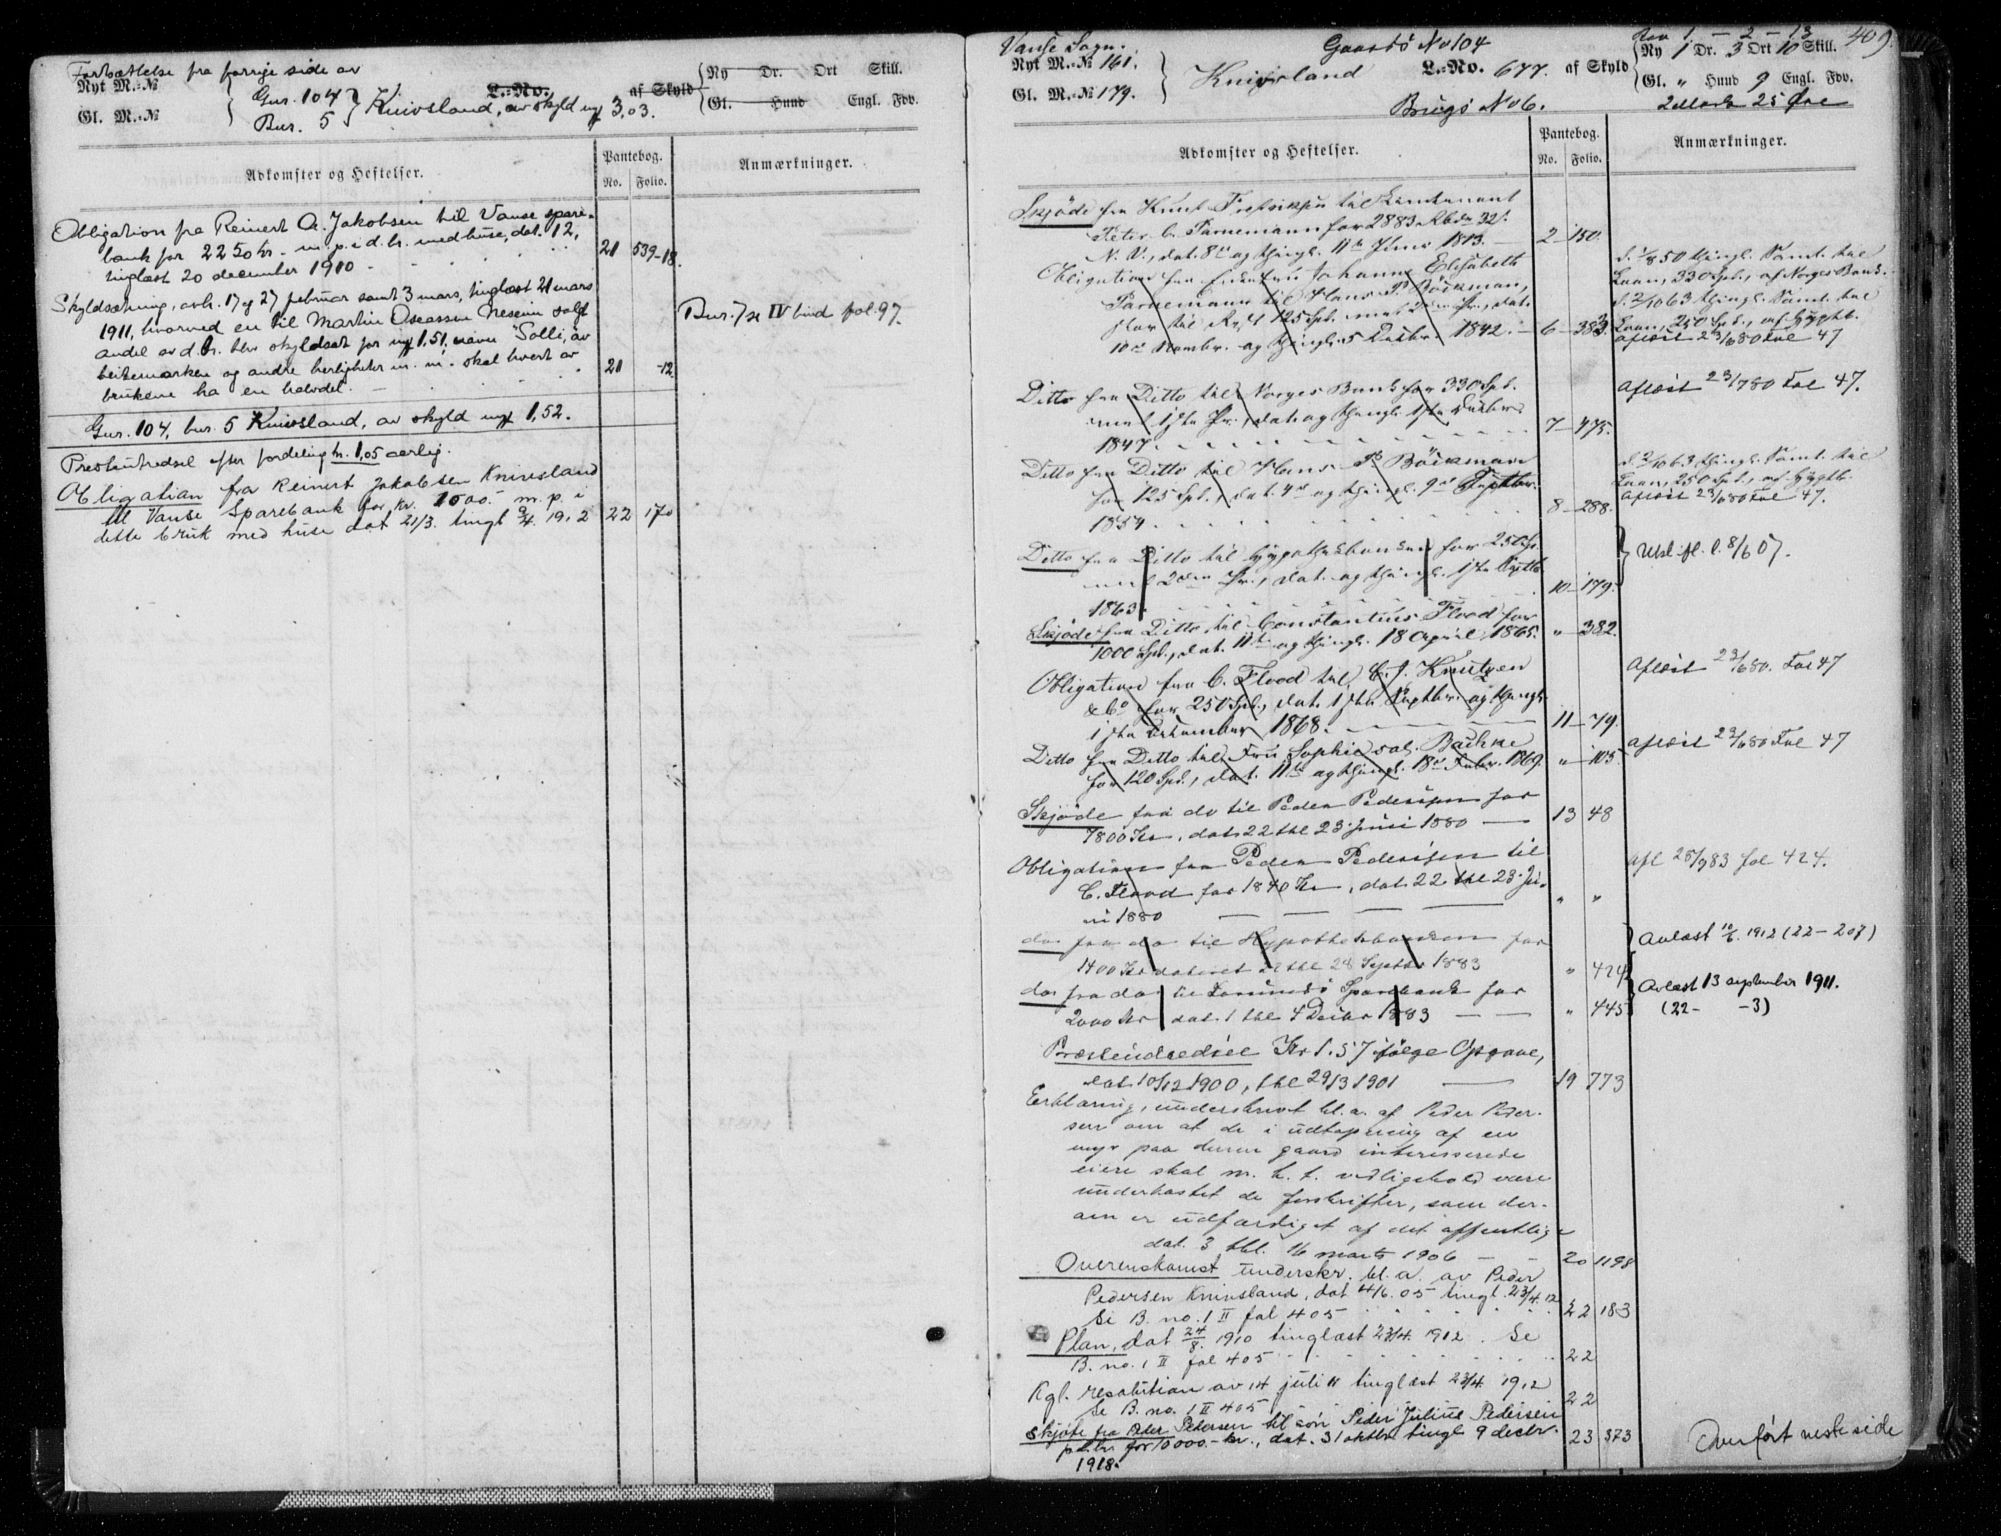 Fortsættelse fra forrige side av
Nyt M.-No
Gl. M.-No
Gnr. 104
Bnr. 5
Knivsland, av skyld my 3,03.
L.-No.
af Skyld
Ny Dr. Ort Skill.
Gl. Hud Engl. Fdv.
Adkomster og Heftelser.
Pantebog.
No. Folio.
Anmærkninger.
Obligation fra Reinert A. Jakobsen til Vanse spare-
bank for 2250 kr. m. p. i d. br. med huse, dat. 12,
tinglæst 20 december 1910 21 539-18.
Skyldsætning, avh. 17 og 27 februar samt 3 mars, tinglæst 21 mars
1911, hvorved en til Martin Oseassen Neseim solgt
andel av d. br. blev skyldsat for my 1,51, navn "Solli", av
beitemarken og andre herligheter m. m. skal hvert av
brukene ha en halvdel. 21 -12.
Bnr. 7 se IV bind fol. 97.
Gnr. 104, bnr. 5 Knivsland, av skyld my 1,52.
Presteindredsel efter fordeling kr. 1,05 aarlig.
Obligation fra Reinert Jakobsen Knivsland
til Vanse Sparebank for kr. 1000.- m. p. i
dette bruk med huse dat 21/3. tingl 9/4. 1912 22 170
409.
Vanse Sogn.
Nyt M.-No 161.
Gl. M.-No 179.
Knivsland
Gaards No 104
L.-No. 677. af Skyld
Brugs No 6.
Ny 1 Dr. 3 Ort 10 Skill.
Gl. " Hud 9 Engl. Fdv.
2 Mark 25 Øre
Adkomster og Heftelser.
Pantebog.
No. Folio.
Anmærkninger.
Skjöde fra Knut til
Peter C. for 2883 Rbdr 32
N. V., dat. 8de og thingl. 11te 1813. 2-150
Obligation fra Johanne Elisabeth
til Hans P. Böckman,
125 Spd. med
10de Novmbr. og thingl. 5 1842. 6-383
thingl. til
Laan, 330 Spd., af Norges Bank.
thingl. til
Laan, 250 Spd., af Hypthb.
aflöst 23/6 80 Fol 47
Ditto fra Ditto til Norges Bank for 330 Spd.
med 1ste Pr., dat. og thingl. 1ste
1847. 7-475.
aflöst 23/7 80 Fol 47.
Ditto fra Ditto til Hans P. Böckman
for 125 Spd., dat. 4de og thingl. 9de Septbr.
1854. 8-288.
thingl. til
Laan, 250 Spd., af Hypthb.
aflöst 23/6 80 Fol 47.
Ditto fra Ditto til Hypothekbanken for 250 Sp.
med 2den Pr., dat. og thingl. 1ste Septb.
1863. 10-179.
Utsl. ifl. l. 8/6 07.
Skjöde fra Ditto til Constantius Flood for
1000 Spd., dat. 11te og thingl. 18 April 1865. " 382.
Obligation fra C. Flood til C. J. Knutzen
& Co for 250 Spd., dat. 1ste Septbr. og thingl.
1ste 1868. 11-79.
aflöst 23/6 80. Fol 47
Ditto fra Ditto til Fru Sophie sal. Bachke
for 120 Spd., dat. 11te og thingl. 18de Febr. 1869. " 105
aflöst 23/6 80 Fol 47
Skjöde fra do til Peder Pedersen for
7800 Kr, dat. 22 thl 23 Juni 1880 13 48
Obligation fra Peder Pedersen til
C. Flood for 1840 Kr, dat. 22 thl 23 Ju-
ni 1880 " "
afl 28/9 83 fol 424.
do fra do til Hypothekbanken for
1400 Kr dateret thl 28 Septbr 1883 " 424
Avlæst 10/6. 1912 (22-207)
do fra do til Sparebank for
2000 Kr dat. 1 thl 4 Decbr 1883 " 445
Avlæst 13 september 1911.
(22- -3)
Præsteindredsel Kr 1.57 ifølge Opgave,
dat. 10/12 1900, thl 29/3 1901 19 773
Erklæring, underskrevt bl. a. af Peder Peder-
sen om at de i udtapning af en
myr paa denne gaard interesserede
eiere skal m. h. t. vedligehold være
underkastet de forskrifter, som der-
om er udfærdiget af det offentlige
dat. 3 thl. 16 marts 1906 20 1198
Overenskomst underskr. bl. a. av Peder
Pedersen Knivsland, dat 4/6. 05 tingl. 23/4. 12
Se B. no. 1 II fol 405 22 183
Plan, dat 24/8. 1910 tinglæst 23/4. 1912. Se
B. no. 1 II fol 405 22
Kgl. resolution av 14 juli 11 tinglæst 23/4 1912
Se B. no. 1 II 405 22
Skjöte fra Peder Pedersen til sön Peder Julius Pedersen
p. d. br. for 10000.- kr., dat. 31 oktbr tingl 9 decbr. 23 373
1918.
Overfört neste side